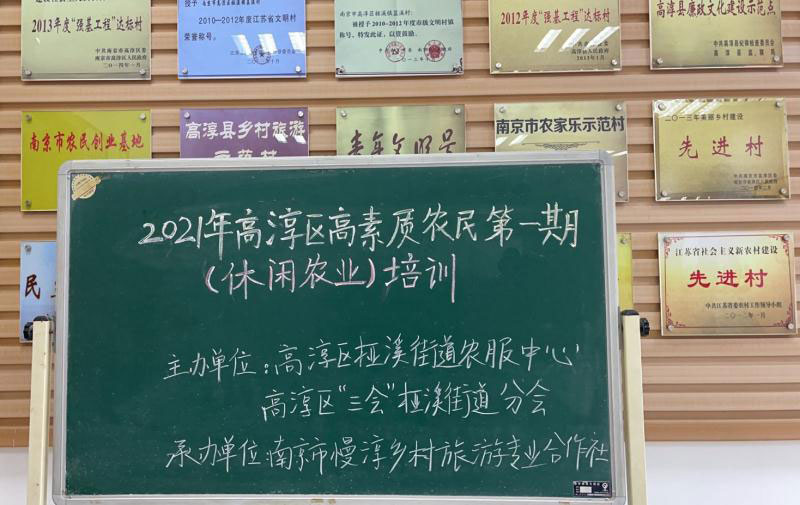 2013年度"强基工程"达标村
中共南京市高淳区委
南京市高淳区人民政府
二〇一四年一月
授予
2010—2012年度江苏省文明村
荣誉称号。
南京市高淳县桠溪镇蓝溪村:
被授予2010-2012年度市级文明村镇
称号,特发此证,以资鼓励。
2012年度"强基工程"达标村
2013年1月
高淳县廉政文化建设示范点
南京市农民创业基地
高淳县乡村旅游
示范村
青年文明号
南京市农家乐示范村
二〇一三年美丽乡村建设
先进村
江苏省社会主义新农村建设
先进村
中共江苏省委农村工作领导小组
二〇一二年一月
民
2021年高淳区高素质农民第一期
(休闲农业)培训
主办单位:高淳区桠溪街道农服中心
高淳区"三会"桠溪街道分会
承办单位:南京市慢淳乡村旅游专业合作社